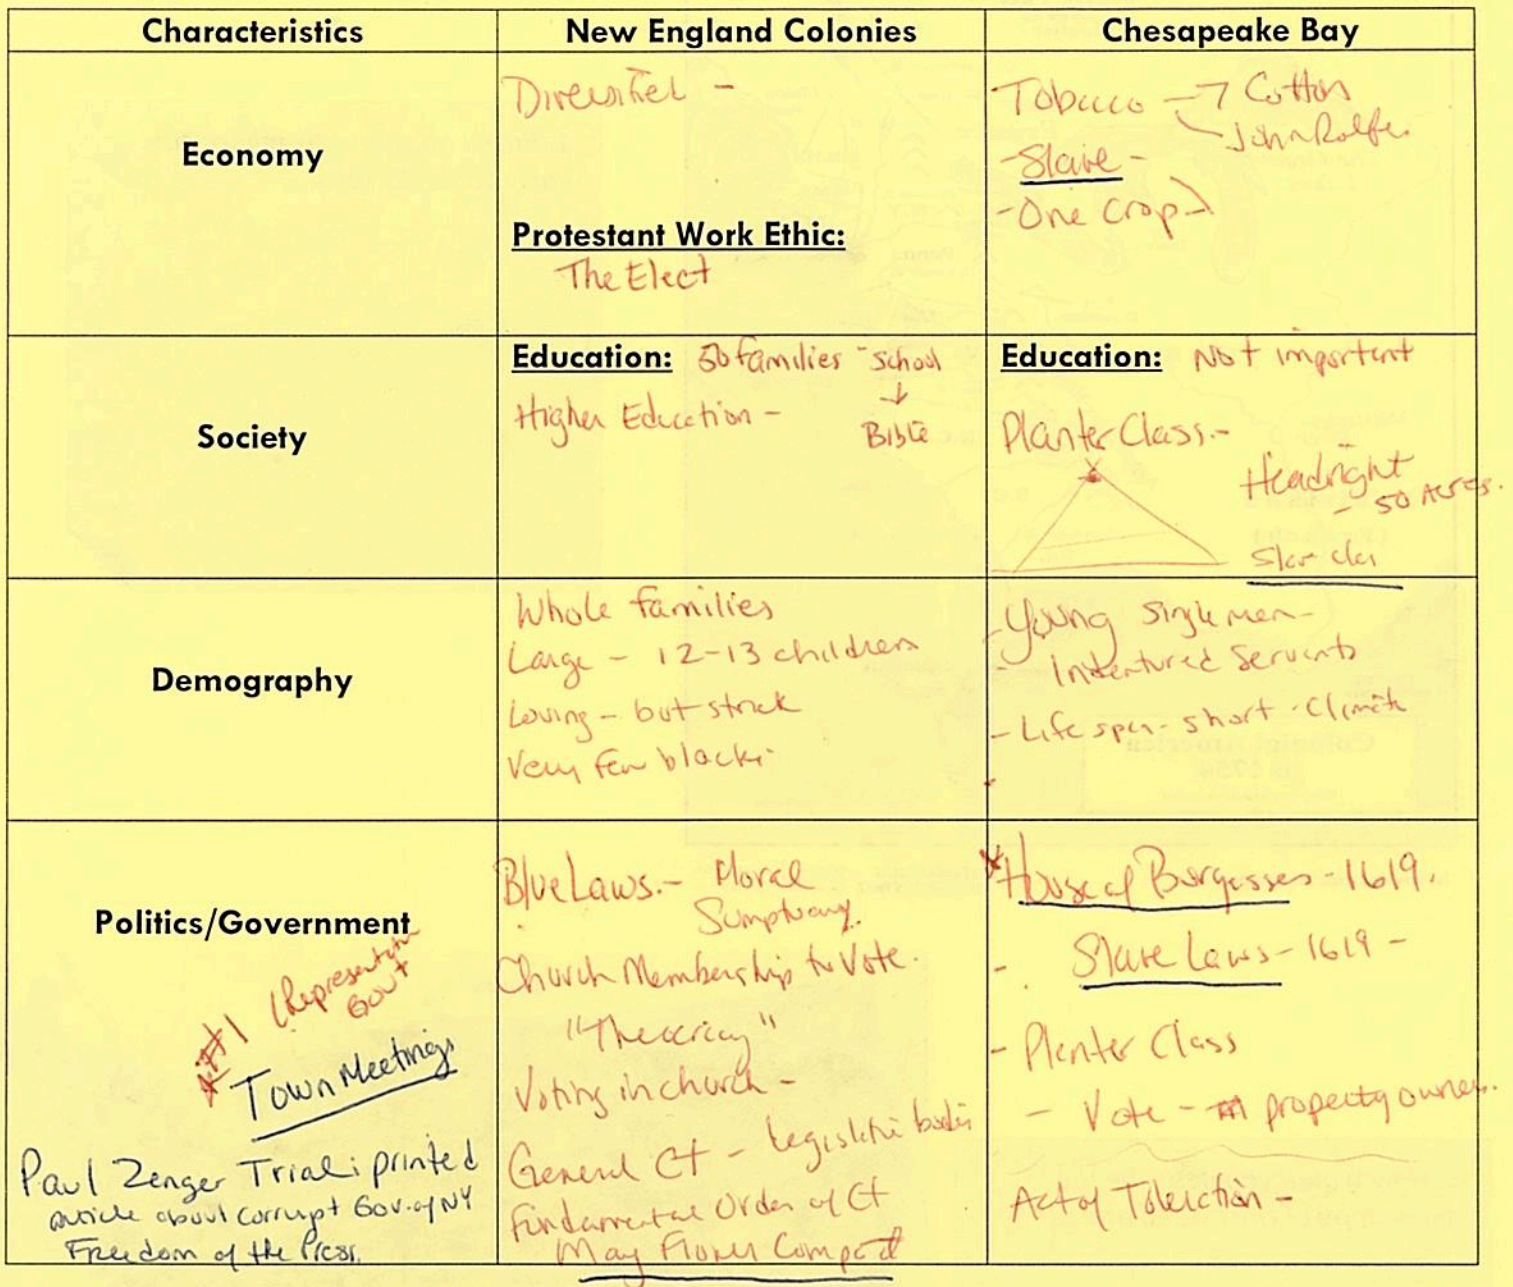 Characteristics
New England Colonies
Chesapeake Bay
Economy
Diversified -
Protestant Work Ethic:
The Elect
Tobacco → Cotton
John Rolfe.
- Slave -
- One Crop
Society
Education: 50 families - school
↓
Bible
Higher Education -
Education: Not important
Planter Class. -
Headright
- 50 Acres.
Demography
Whole families
Large - 12-13 children
Loving - but strick
Very few blacks
- Young Single men -
- Indentured Servents
- Life span - short - Climate
Politics/Government
#1 (Representative
Gov't
Town Meetings
Paul Zenger Trial: printed
article about corrupt Gov. of NY
Freedom of the Press.
Blue Laws. - Moral
Sumptuary.
Church Membership to Vote.
"Theocracy"
Voting in church -
General Ct - Legislative bodies
Fundamental Order of Ct
May Flower Compact
* House of Burgesses - 1619.
- Slave Laws - 1619 -
- Planter Class
- Vote - property owners.
Act of Toleration -